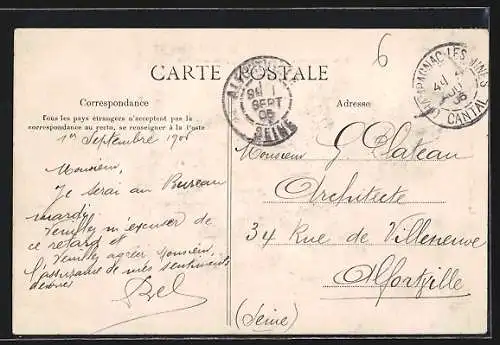 CARTE POSTALE
Correspondance
Tous les pays étrangers n'acceptent pas la
correspondance au recto, se renseigner à la Poste
1er Septembre 190
Monsieur,
Je serai au Bureau
mardi.
Veuillez m'excuser de
ce retard et
Veuillez agréer Monsieur
l'assurance de mes sentiments
Bel
ALFORTVILLE
8H 1
SEPT
05
SEINE
6
CHAMPAGNAC-LES-MINES
CANTAL
Adresse
Monsieur G. Plateau
Architecte
34 Rue de Villeneuve
Alfortville
(Seine)